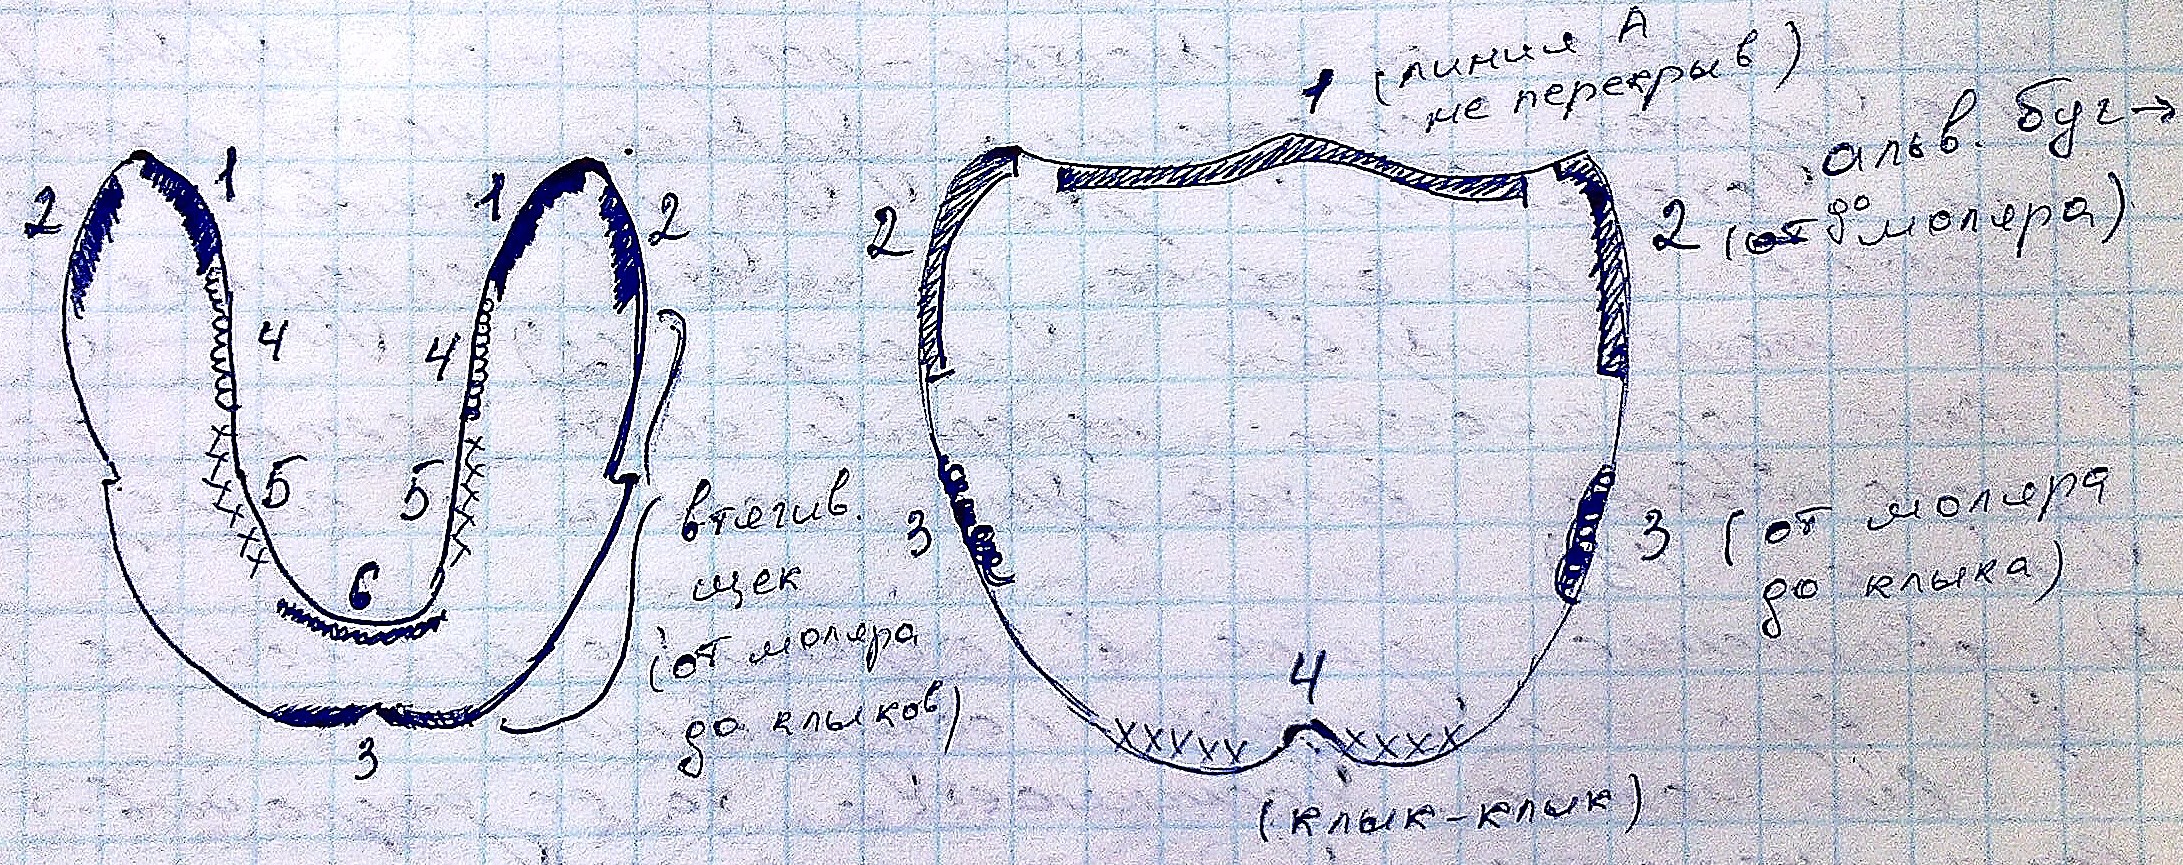 1 (линия А
не перекрыв)
альв. буг→
2 (до моляра)
2
1
1
2
2
4
4
5
5
6
3
втягив.
щек
(от моляра
до клыков)
3
3 (от моляра
до клыка)
4
(клык-клык)